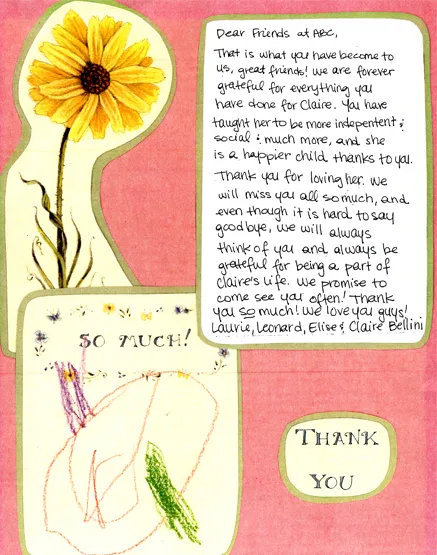 Dear Friends at ABC,
That is what you have become to
us, great friends! We are forever
grateful for everything you
have done for Claire. You have
taught her to be more indepentent &
social & much more, and she
is a happier child thanks to you.
Thank you for loving her. We
will miss you all so much, and
even though it is hard to say
goodbye, we will always
think of you and always be
grateful for being a part of
Claire's life. We promise to
come see you often! Thank
you so much! We love you guys!
Laurie, Leonard, Elise & Claire Bellini
SO MUCH!
THANK
YOU